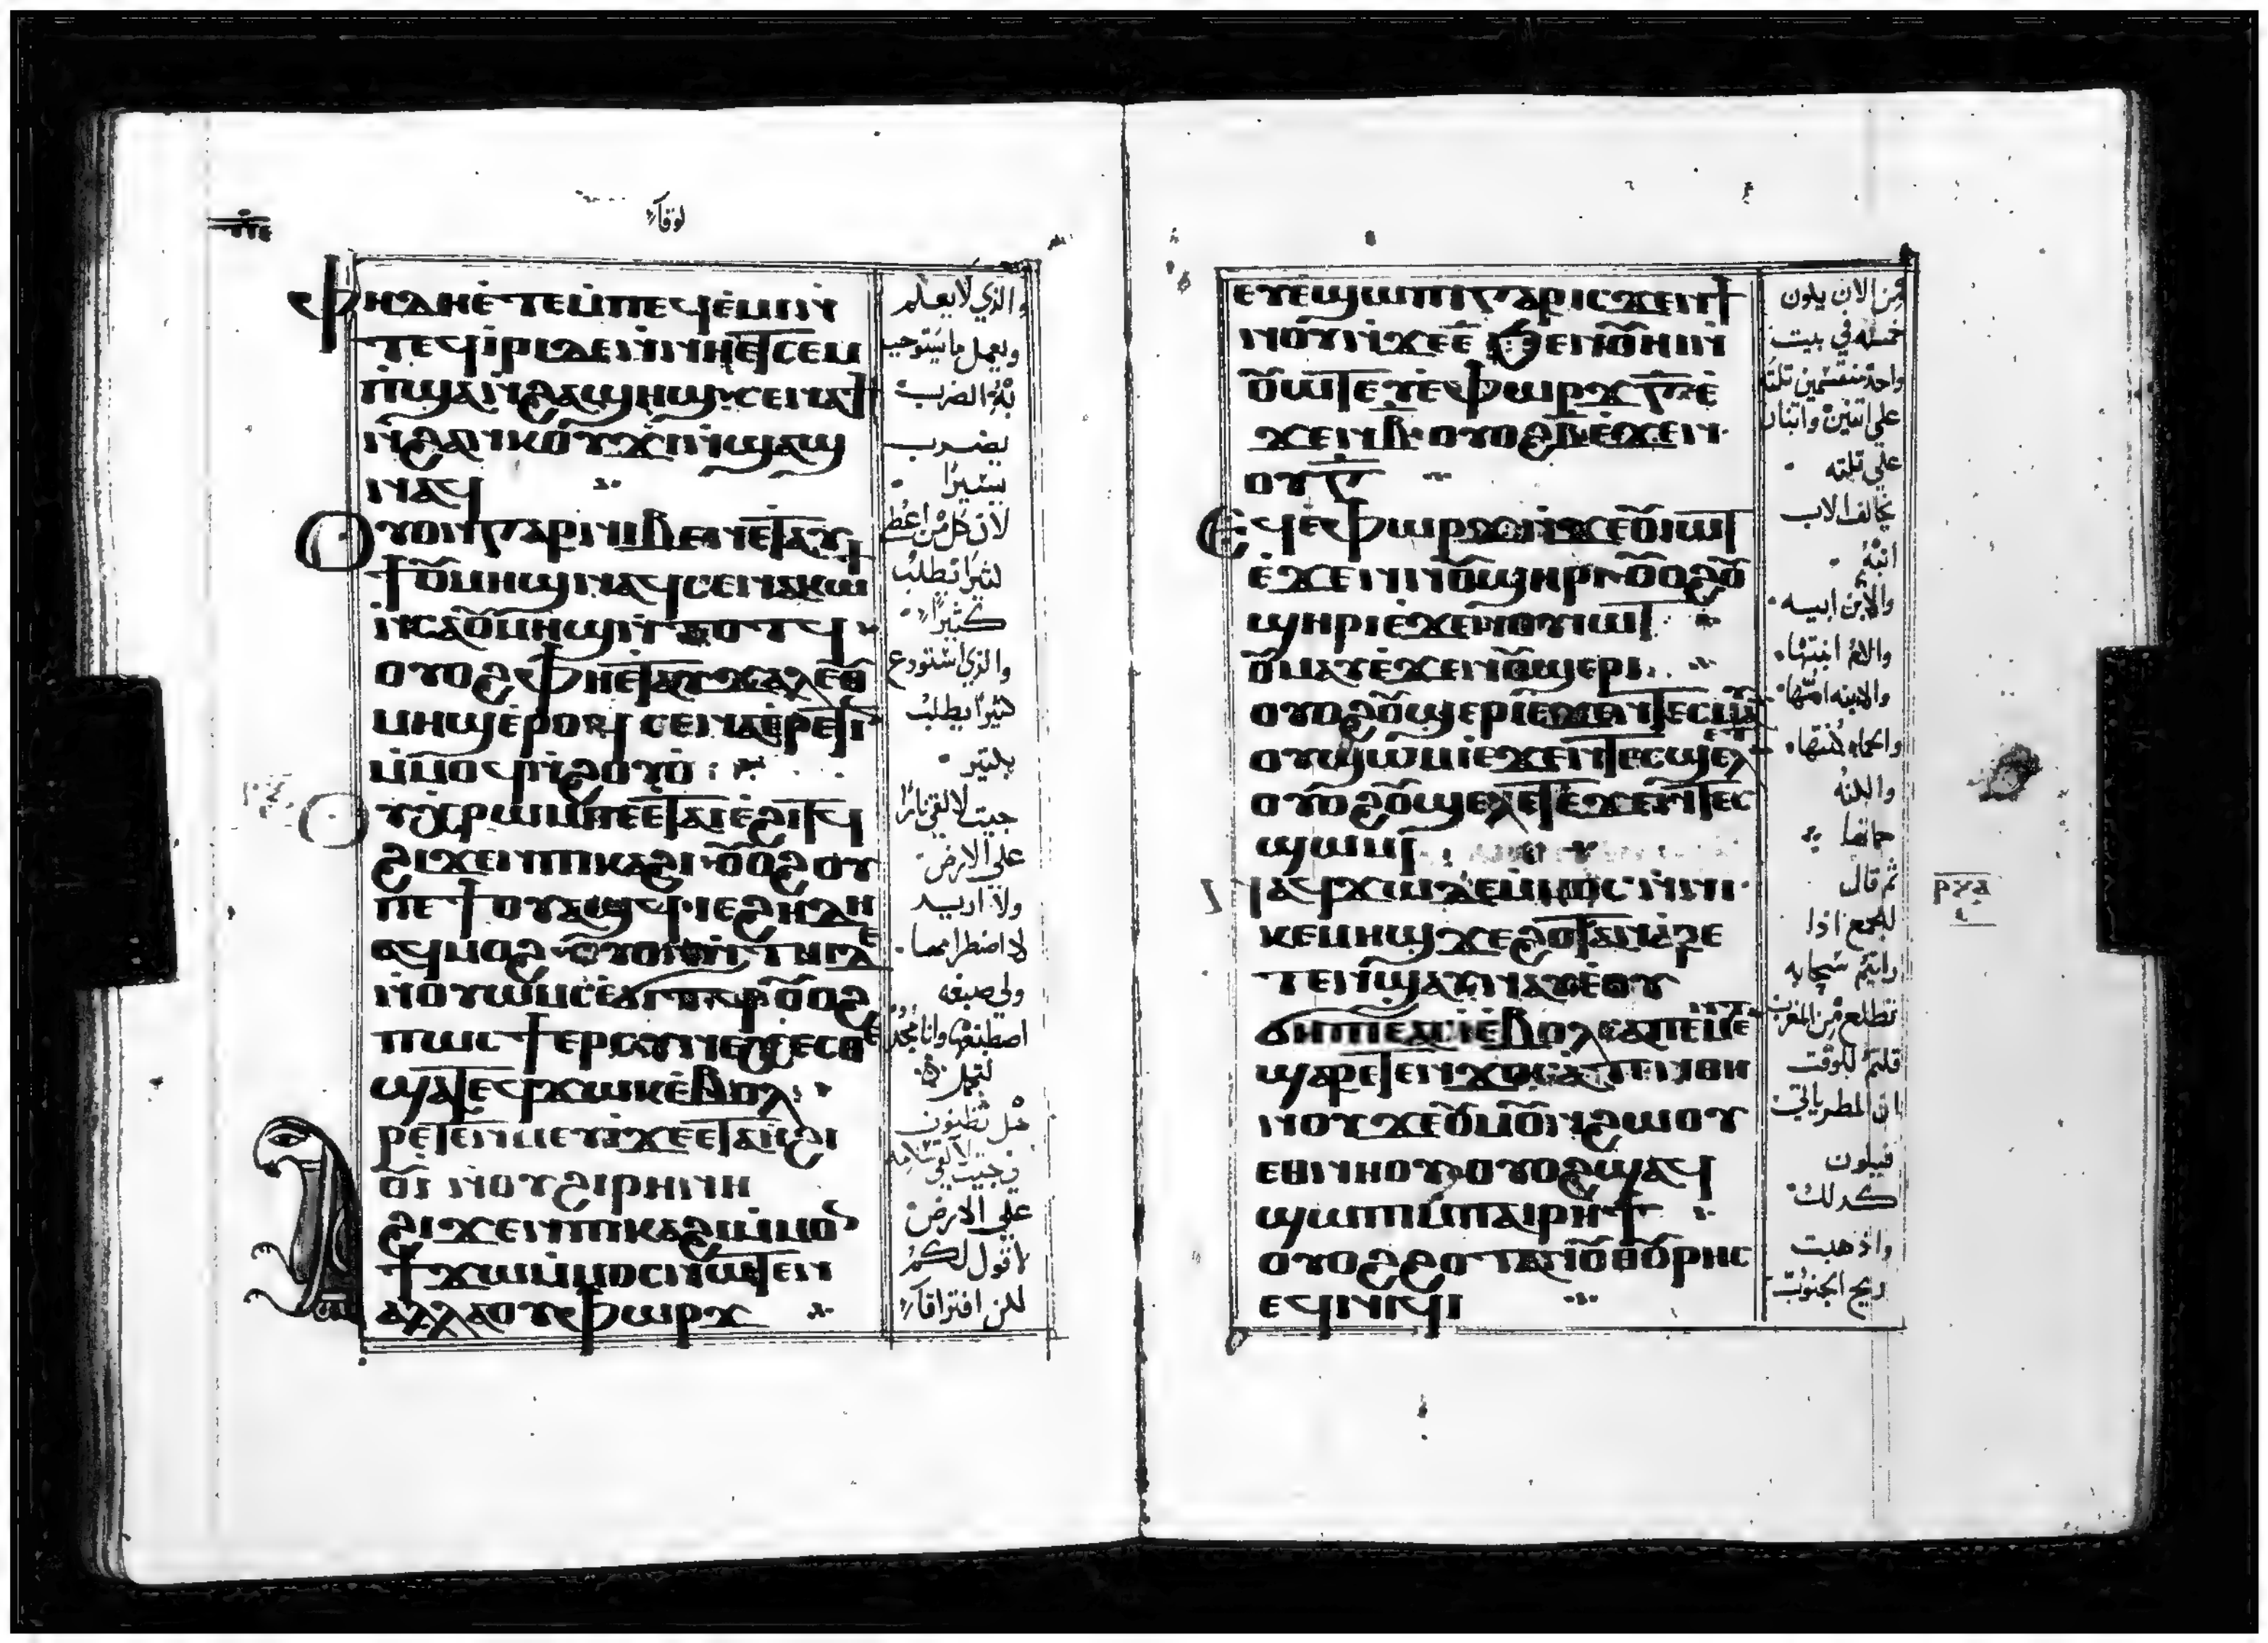 لوقا
ⲫⲏⲇⲉ ⲉⲧⲉⲙⲡⲉϥⲉⲙⲓ ⲛ̀
ⲧⲉϥⲓⲣⲓ ⲇⲉ ⲛ̀ⲛⲏⲉⲧⲥⲉⲙ
ⲡϣⲁ ⲛϩⲁⲛϣⲏϣ ⲥⲉⲛⲁϯ
ⲛ̀ϩⲁⲛⲕⲟⲩϫⲓ ⲛ̀ϣⲁϣ
ⲛⲁϥ
ⲟⲩⲟⲛ ⲅⲁⲣ ⲛⲓⲃⲉⲛ ⲉⲧⲁⲩ
ϯ ⲟⲩⲙⲏϣ ⲛⲁϥ ⲥⲉⲛⲁⲕⲱϯ
ⲛ̀ⲥⲁ ⲟⲩⲙⲏϣ ⲛ̀ⲧⲟⲧϥ
ⲟⲩⲟϩ ⲫⲏⲉⲧⲁⲩⲭⲁ
ⲙⲏϣ ⲉⲣⲟϥ ⲥⲉⲛⲁⲉⲣⲉⲧⲓⲛ
ⲙ̀ⲙⲟϥ ⲛ̀ϩⲟⲩⲟ
ⲟⲩⲭⲣⲱⲙ ⲡⲉ ⲉⲧⲁⲓⲉϩⲓⲧϥ
ϩⲓϫⲉⲛ ⲡⲓⲕⲁϩⲓ ⲟⲩⲟϩ ⲟⲩ
ⲡⲉϯⲟⲩⲁϣϥ ⲓⲉ ϩⲏⲇⲏ
ⲁϥⲙⲟϩ ⲟⲩⲟⲛϯ ⲛⲧⲏⲓ ⲇⲉ
ⲛⲟⲩⲱⲙⲥ ⲉϭⲓⲧϥ ⲟⲩⲟϩ
ⲡⲱⲥ ϯⲉⲣⲥⲩⲛⲉⲭⲉⲥⲑⲉ
ϣⲁⲧⲉϥϫⲱⲕ ⲉⲃⲟⲗ
ⲁⲣⲉⲧⲉⲛⲙⲉⲩⲓ ϫⲉ ⲉⲧⲁⲓⲓ ⲉϩⲓ
ⲟⲩⲓ ⲛⲟⲩϩⲓⲣⲏⲛⲏ
ϩⲓϫⲉⲛ ⲡⲓⲕⲁϩⲓ ⲙ̀ⲙⲟⲛ
ϯϫⲱ ⲙ̀ⲙⲟⲥ ⲛⲱⲧⲉⲛ
ⲁⲗⲗⲁ ⲟⲩⲫⲱⲣϫ
والذي لا يعلم
ويعمل ما يستوجب
به الضرب
يضرب
يسيرا
لان كل من اعطي
كثيرا يطلب
كثيرا
والذي استودع
كثيرا يطلب
بكثير
جيت لالقي نارا
علي الارض
ولا اريد
لا اضطرامها
ولي صبغه
اصطبغها وانا مجد
لتكمل
هل تظنون
علي الارض
لا اقول لكم
لكن افتراقا
ⲉⲩⲉϣⲱⲡⲓ ⲅⲁⲣ ⲓⲥϫⲉⲛ ϯ
ⲛⲟⲩ ⲛ̀ϫⲉ ⲉ̅ ϧⲉⲛ ⲟⲩⲏⲓ ⲛ̀
ⲟⲩⲱⲧ ⲉⲩⲉⲫⲱⲣϫ ⲅ̅ ⲉ
ϫⲉⲛ ⲃ̅ ⲟⲩⲟϩ ⲃ̅ ⲉϫⲉⲛ
ⲟⲩⲅ̅
ⲉϥⲉⲫⲱⲣϫ ⲛ̀ϫⲉ ⲟⲩⲓⲱⲧ
ⲉϫⲉⲛ ⲛⲟⲩϣⲏⲣⲓ ⲟⲩⲟϩ ⲟⲩ
ϣⲏⲣⲓ ⲉϫⲉⲛ ⲟⲩⲓⲱⲧ
ⲟⲩⲙⲁⲩ ⲉϫⲉⲛ ⲟⲩϣⲉⲣⲓ
ⲟⲩⲟϩ ⲟⲩϣⲉⲣⲓ ⲉϫⲉⲛ ⲧⲉⲥⲙⲁⲩ
ⲟⲩϣⲱⲙⲓ ⲉϫⲉⲛ ⲧⲉⲥϣⲉⲗ
ⲟⲩⲟϩ ⲟⲩϣⲉⲗⲉⲧ ⲉϫⲉⲛ ⲧⲉⲥ
ϣⲱⲙⲓ
ⲛⲁϥϫⲱ ⲇⲉ ⲙ̀ⲙⲟⲥ ⲛ̀ⲛⲓ
ⲕⲉⲙⲏϣ ϫⲉ ϩⲟⲧⲁⲛ ⲁⲣⲉ
ⲧⲉⲛϣⲁⲛⲛⲁⲩ ⲉⲟⲩ
ϭⲏⲡⲓ ⲉⲁⲥⲓ ⲉⲃⲟⲗ ⲥⲁ ⲡⲉⲙⲉⲛⲧ
ϣⲁⲣⲉⲧⲉⲛϫⲟⲥ ⲥⲁⲧⲉⲛ ϯ
ⲛⲟⲩ ϫⲉ ⲟⲩⲙⲟⲩⲛϩⲱⲟⲩ
ⲉⲑⲛⲏⲟⲩ ⲟⲩⲟϩ ϣⲁϥ
ϣⲱⲡⲓ ⲙ̀ⲡⲁⲓⲣⲏϯ
ⲟⲩⲟϩ ϩⲟⲧⲁⲛ ⲟⲩⲑⲟⲩⲣⲏⲥ
ⲉϥⲛⲓϥⲓ
من الان يكون
خمسه في بيت
واحد منقسمين ثلثه
علي اثنين واثنان
علي ثلثه
يخالف الاب
ابنه
والابن ابيه
والام ابنتها
والابنه امها
والحماه كنتها
والكنه
حماتها
ثم قال
للجمع اذا
رايتم سحابه
تطلع من المغرب
قلتم للوقت
ان المطر ياتي
فيكون
كدلك
واذ هبت
ريح الجنوب
ⲣⲩⲁ